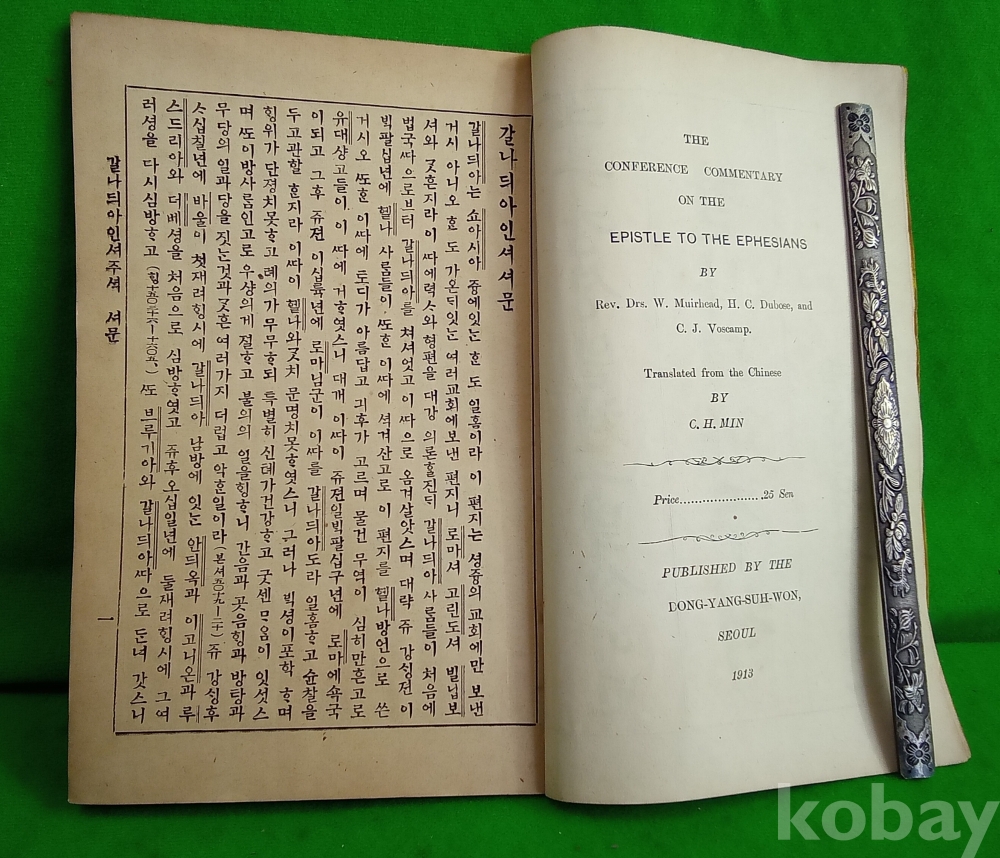 갈나듸아인셔셔문
갈나듸아는 쇼아시아 즁에잇는 ᄒᆞᆫ 도 일홈이라 이 편지는 셩즁의 교회에만 보낸
거시 아니오 ᄒᆞᆫ 도 가온ᄃᆡ잇는 여러교회에보낸 편지니 로마셔 고린도셔 빌닙보
셔와 ᄀᆞᆺ흔지라 이 ᄯᅡ에력ᄉᆞ와 형편을 대강 의론ᄒᆞᆯ진ᄃᆡ 갈나듸아 사ᄅᆞᆷ들이 처음에
법국ᄯᅡ으로브터 갈나듸아를 쳐셔엇고 이 ᄯᅡ으로 옴겨살앗스며 대략 쥬 강ᄉᆡᆼ젼 이
ᄇᆡᆨ팔십년에 헬나 사ᄅᆞᆷ들이 ᄯᅩᄒᆞᆫ 이 ᄯᅡ에 셔겨산고로 이 편지를 헬나방언으로 쓴
거시오 ᄯᅩᄒᆞᆫ 이 ᄯᅡ에 토디가 아름답고 긔후가 고르며 물건 무역이 심히만흔고로
유대샹고들이 이 ᄯᅡ에 거ᄒᆞ엿스니 대개 이 ᄯᅡ이 쥬젼일ᄇᆡᆨ팔십구년에 로마에쇽국
이되고 그후 쥬젼 이십륙년에 로마님군이 이 ᄯᅡ를 갈나듸아도라 일홈ᄒᆞ고 슌찰을
두고관할 ᄒᆞᆫ지라 이 ᄯᅡ이 헬나와ᄀᆞᆺ치 문명치못ᄒᆞ엿스니 그러나 ᄇᆡᆨ셩이포학 ᄒᆞ며
ᄒᆡᆼ위가 단졍치못ᄒᆞ고 례의가무무ᄒᆞ되 특별히 신톄가건강ᄒᆞ고 굿센 ᄆᆞᄋᆞᆷ이 잇섯스
며 ᄯᅩ이방사ᄅᆞᆷ인고로 우샹의게 졀ᄒᆞ고 불의의 일을ᄒᆡᆼᄒᆞ니 간음과 곳음힐과 방탕과
무당의 일과당을 짓는것과 ᄀᆞᆺ흔 여러가지 더럽고 악ᄒᆞᆫ일이라 (본셔五〇十九―二十) 쥬 강ᄉᆡᆼ후
ᄉᆞ십칠년에 바울이 첫재려ᄒᆡᆼ시에 갈나듸아 남방에 잇는 안듸옥과 이고니온과 루
스드리아와 더베셩을 처음으로 심방ᄒᆞ엿고 쥬후 오십일년에 둘재려ᄒᆡᆼ시에 그여
러셩을 다시심방ᄒᆞ고 (ᄒᆡᆼ十五〇三十六―十六〇五) ᄯᅩ 브루기아와 갈나듸아ᄯᅡ으로 ᄃᆞᆫ녀 갓스니
갈나듸아인셔주셕 셔문
一
THE
CONFERENCE COMMENTARY
ON THE
EPISTLE TO THE EPHESIANS
BY
Rev. Drs. W. Muirhead, H. C. Dubose, and
C. J. Voscamp.
Translated from the Chinese
BY
C. H. MIN
Price......................25 Sen
PUBLISHED BY THE
DONG-YANG-SUH-WON,
SEOUL
1913
kobay